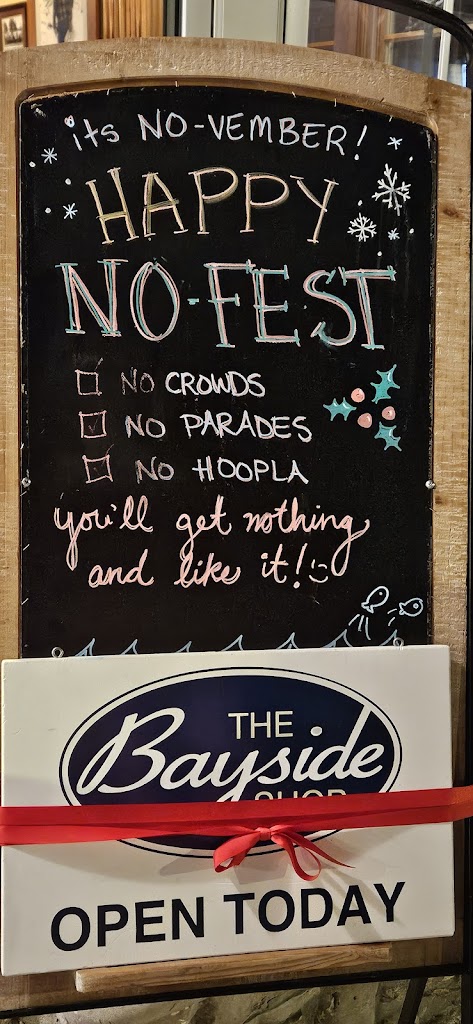 its NO-VEMBER!
HAPPY
NO-FEST
NO CROWDS
NO PARADES
NO HOOPLA
you'll get nothing
and like it!
THE
Bayside
SHOP
OPEN TODAY